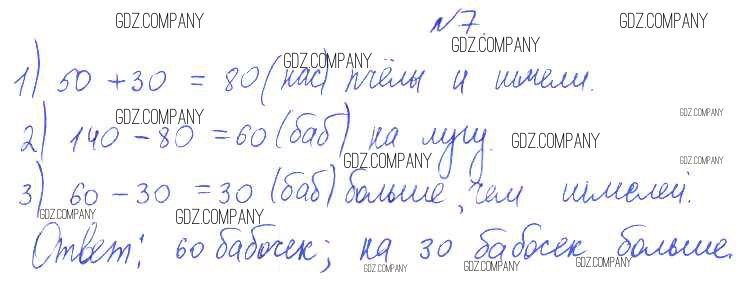 GDZ.COMPANY GDZ.COMPANY
№7.
GDZ.COMPANY
GDZ.COMPANY
1) 50 + 30 = 80 (нас) пчёлы и шмели.
GDZ.COMPANY GDZ.COMPANY
2) 140 - 80 = 60 (баб) на лугу.
GDZ.COMPANY
GDZ.COMPANY GDZ.COMPANY
3) 60 - 30 = 30 (баб) больше, чем шмелей.
GDZ.COMPANY GDZ.COMPANY
Ответ: 60 бабочек; на 30 бабочек больше.
GDZ.COMPANY GDZ.COMPANY GDZ.COMPANY